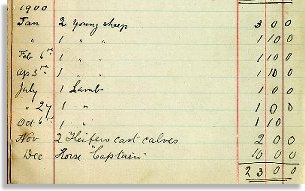 1900
Jan 2 Young sheep 3 0 0
" 1 " " 1 10 0
Feb 6th 1 " " 1 10 0
Ap 3rd 1 " " 1 10 0
July 1 Lamb 1 0 0
" 27 1 " 1 0 0
Oct 6th 1 " 10 0
Nov 2 Heifers cast calves 2 0 0
Dec Horse "Captain" 10 0 0
23 0 0